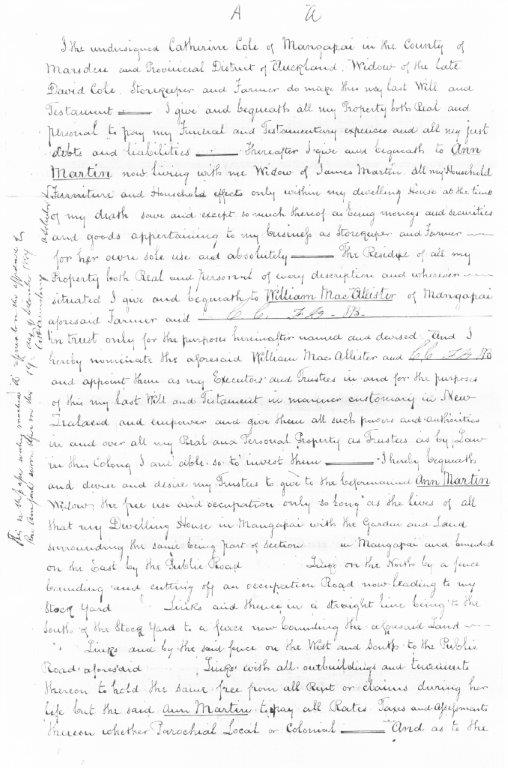 A A
I the undersigned Catherine Cole of Mangapai in the County of
Marsden and Provincial District of Auckland, Widow of the late
David Cole. Storekeeper and Farmer do make this my last Will and
Testament — I give and bequeath all my Property both Real and
personal to pay my Funeral and Testamentary expences and all my just
debts and liabilities — Thereafter I give and bequeath to Ann
Martin now living with me Widow of James Martin. All my Household
Furniture and Household effects only within my dwelling House at the time
of my death save and except so much thereof as being moneys and securities
and goods appertaining to my business as Storekeeper and Farmer —
for her owne sole use and absolutely — The Residue of all my
Property both Real and Personal of every description and wherever —
situated I give and bequeath to William Mac Allister of Mangapai
aforesaid Farmer and
in trust only for the purposes hereinafter named and devised. And I
hereby nominate the aforesaid William Mac Allister and
and appoint them as my Executors and Trustees in and for the purposes
of this my last Will and Testament in manner customary in New
Zealand and empower and give them all such powers and authorities
in and over all my Real and Personal Property as Trustees as by Law
in this Colony I am able so to invest them — I hereby bequeath
and devise and desire my Trustees to give to the beforenamed Ann Martin
Widow, the free use and occupation only so long as she lives of all
that my Dwelling House in Mangapai with the Garden and Land
surrounding the same being part of section in Mangapai and bounded
on the East by the Public Road Links on the North by a fence
bounding and cutting off an occupation Road now leading to my
Stock Yard Links and thence in a straight line being to the
South of the Stock Yard to a fence now bounding the aforesaid Land —
Links and by the said fence on the West and South to the Public
Road aforesaid Links with all outbuildings and tenements
thereon to hold the same free from all Rent or claims during her
life but the said Ann Martin to pay all Rates Taxes and Assessments
thereon whether Parochial Local or Colonial — And as to the
This is the paper writing marked A referred to in the